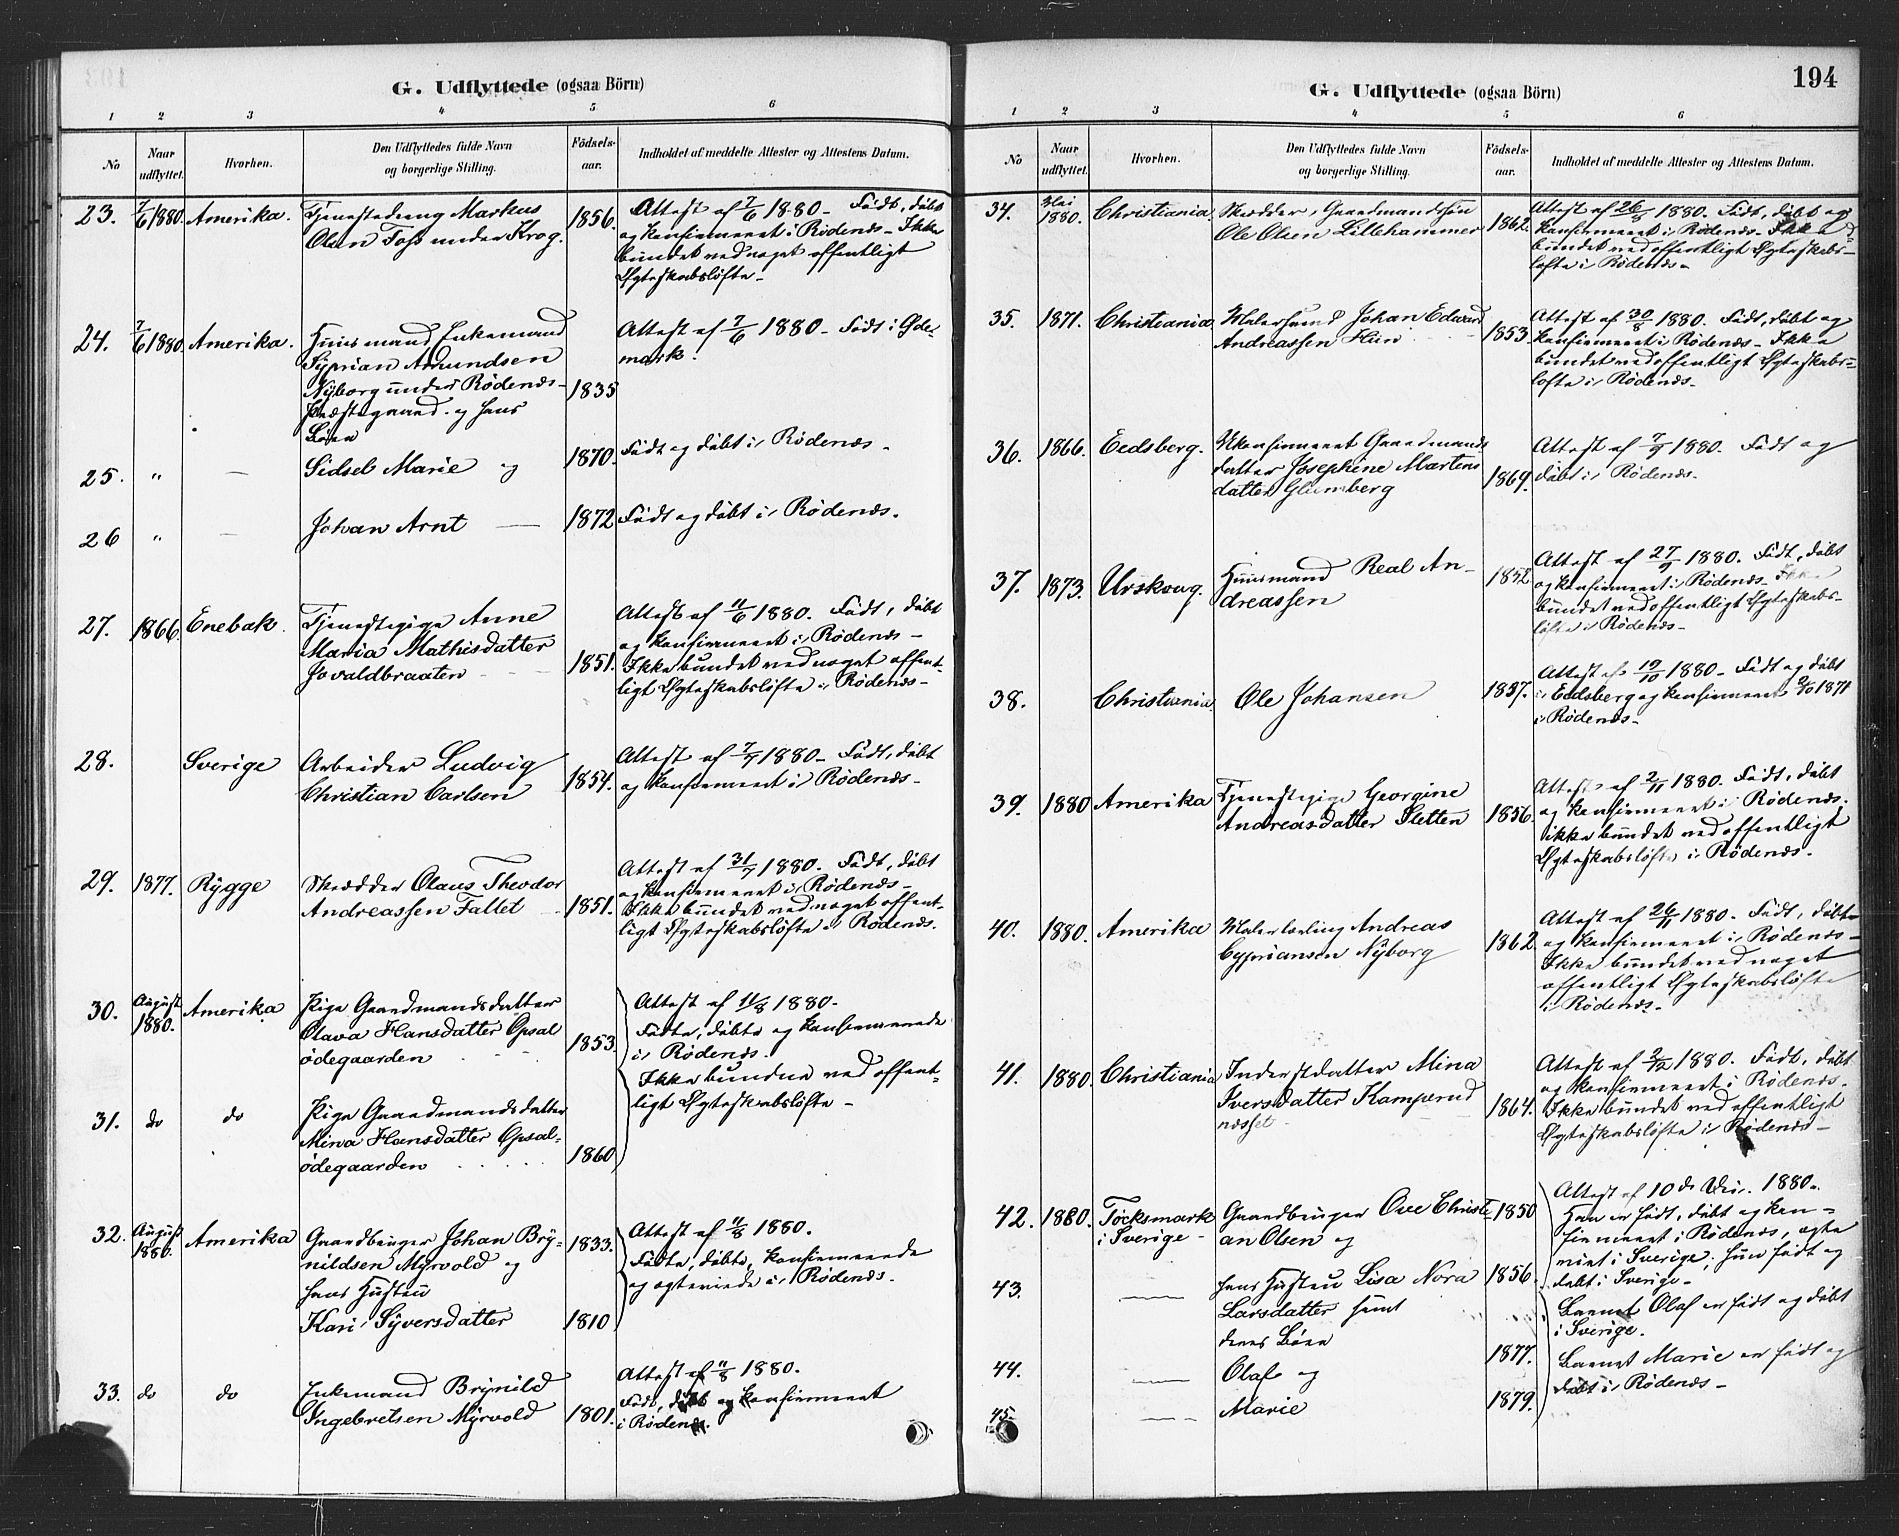 G. Udflyttede (ogsaa Börn)
1 2 3 4 5 6
No
Naar udflyttet.
Hvorhen.
Den Udflyttedes fulde Navn
og borgerlige Stilling.
Födsels-
aar.
Indholdet af meddelte Attester og Attestens Datum.
23. 7/6 1880. Amerika. Tjenestedreng Markus
Olsen Foss under Krog. 1856.
Attest af 7/6 1880 - Født, døbt
og konfirmeret i Rødenæs - Ikke
bundet ved noget offentligt
Ægteskabsløfte -
24. 7/6 1880. Amerika. Huusmand Enkemand
Syprian Amundsen
Nyborg under Rødenæs-
Præstegaard og hans
Børn
1835
Attest af 7/6 1880 - Født i Øde-
mark.
25. " — Sidsel Marie og 1870. Født og døbt i Rødenæs -
26 " — Johan Arnt — 1872 Født og døbt i Rødenæs.
27. 1866. Enebak. Tjenestepige Anne
Maria Mathisdatter
Jovaldbraaten - 1851.
Attest af 11/6 1880. Født, døbt
og konfirmeret i Rødenæs -
Ikke bundet ved noget offent-
ligt Ægteskabsløfte i Rødenæs -
28. Sverige Arbeider Ludvig
Christian Carlsen 1854.
Attest af 7/7 1880 - Født, døbt
og konfirmeret i Rødenæs -
29. 1877. Rygge Skrædder Olaus Theodor
Andreassen Fallet 1851.
Attest af 31/7 1880. Født, døbt
og konfirmeret i Rødenæs -
Ikke bundet ved noget offent-
ligt Ægteskabsløfte i Rødenæs.
30. August 1880. Amerika Pige Gaardmandsdatter
Olava Hansdatter Opsal
ødegaarden 1853.
Attest af 11/8 1880 -
Fødte, døbte og konfirmerede
i Rødenæs.
Ikke bundne ved offent-
ligt Ægteskabsløfte -
31. do do Pige Gaardmandsdatter
Mina Hansdatter Opsal-
ødegaarden 1860
32. August 1880. Amerika Gaardbruger Johan Bry-
nildsen Myrvold og 1833.
hans Hustru
Kari Syversdatter 1810
Attest af 11/8 1880.
Fødte, døbte, konfirmerede
og ægteviede i Rødenæs.
33. do do Enkemand Brynild
Ingebretsen Myrvold 1801.
Attest af 11/8 1880.
Født, døbt og konfirmeret
i Rødenæs.
G. Udflyttede (ogsaa Börn) 194
1 2 3 4 5 6
No
Naar udflyttet.
Hvorhen.
Den Udflyttedes fulde Navn
og borgerlige Stilling.
Födsels-
aar.
Indholdet af meddelte Attester og Attestens Datum.
34. Mai 1880. Christiania Skrædder, Gaardmandssøn
Ole Olsen Lillehammer 1862.
Attest af 26/8 1880. Født, døbt og
konfirmeret i Rødenæs - Ikke
bundet ved offentligt Ægteskabs-
løfte i Rødenæs -
35. 1871. Christiania Malersvend Johan Edvard
Andreassen Hun 1853.
Attest af 30/8 1880. Født, døbt og
konfirmeret i Rødenæs - Ikke
bundet ved offentligt Ægteskabs-
løfte i Rødenæs -
36. 1866. Eedsberg. Ukonfirmeret Gaardmands
datter Josephine Martens
datter Glumberg 1869.
Attest af 7/9 1880. Født og
døbt i Rødenæs.
37. 1873. Urskoug. Huusmand Real An-
dreassen 1852
Attest af 27/9 1880. Født, døbt
og konfirmeret i Rødenæs - Ikke
bundet ved offentligt Ægteskabs-
løfte i Rødenæs -
38. Christiania. Ole Johansen 1857.
Attest af 19/10 1880 - Født og døbt
i Eedsberg og konfirmeret 2/10 1871
i Rødenæs -
39. 1880 Amerika Tjenestepige Georgine
Andreasdatter Sletten 1856.
Attest af 2/11 1880. Født, døbt
og konfirmeret i Rødenæs.
ikke bundet ved offentligt
Ægteskabsløfte i Rødenæs.
40. 1880. Amerika Malerlærling Andreas
Cypriansen Nyborg 1862
Attest af 26/11 1880. Født, døbt
og konfirmeret i Rødenæs -
Ikke bundet ved noget
offentligt Ægteskabsløfte
i Rødenæs -
41. 1880. Christiania Inderstdatter Mina
Iversdatter Kamperud
næsset 1864.
Attest af 2/12 1880. Født, døbt
og konfirmeret i Rødenæs.
Ikke bundet ved offentligt
Ægteskabsløfte i Rødenæs -
42. 1880. Töcksmark
i Sverige - Gaardbruger Ove Christi-
an Olsen og 1850
Attest af 10de Dec. 1880.
Han er født, døbt og kon-
firmeret i Rødenæs, ægte
viet i Sverige, hun født og
døbt i Sverige -
43. — hans Hustru Lisa Nora 1856.
Larsdatter samt
deres Børn
44. — Olaf og 1877.
Barnet Olaf er født og døbt
i Sverige.
45. — Marie 1879.
Barnet Marie er født og
døbt i Rødenæs -